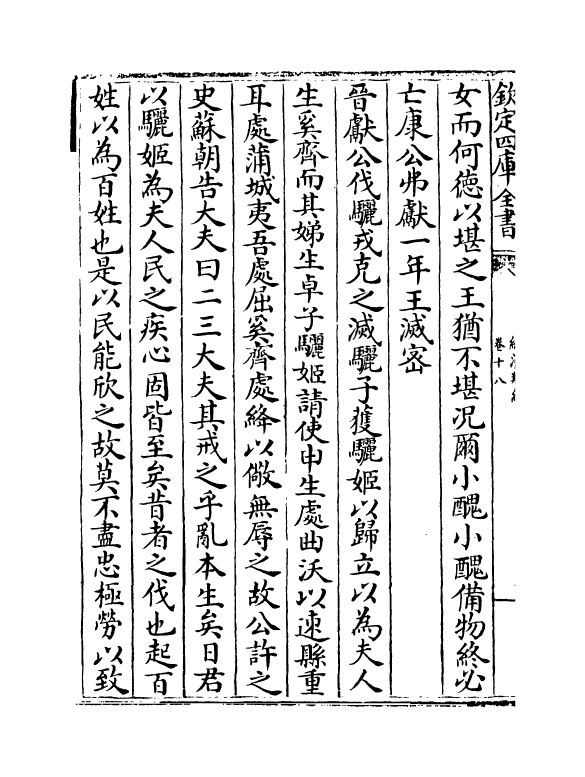 欽定四庫全書
卷十八
女而何徳以堪之王猶不堪况爾小醜小醜備物終必
亡康公弗獻一年王滅宻
晉獻公伐驪戎克之滅驪子獲驪姬以歸立以為夫人
生奚齊而其娣生卓子驪姬請使申生處曲沃以速縣重
耳處蒲城夷吾處屈奚齊處絳以儆無辱之故公許之
史蘇朝告大夫曰二三大夫其戒之乎亂本生矣日君
以驪姬為夫人民之疾心固皆至矣昔者之伐也起百
姓以為百姓也是以民能欣之故莫不盡忠極勞以致